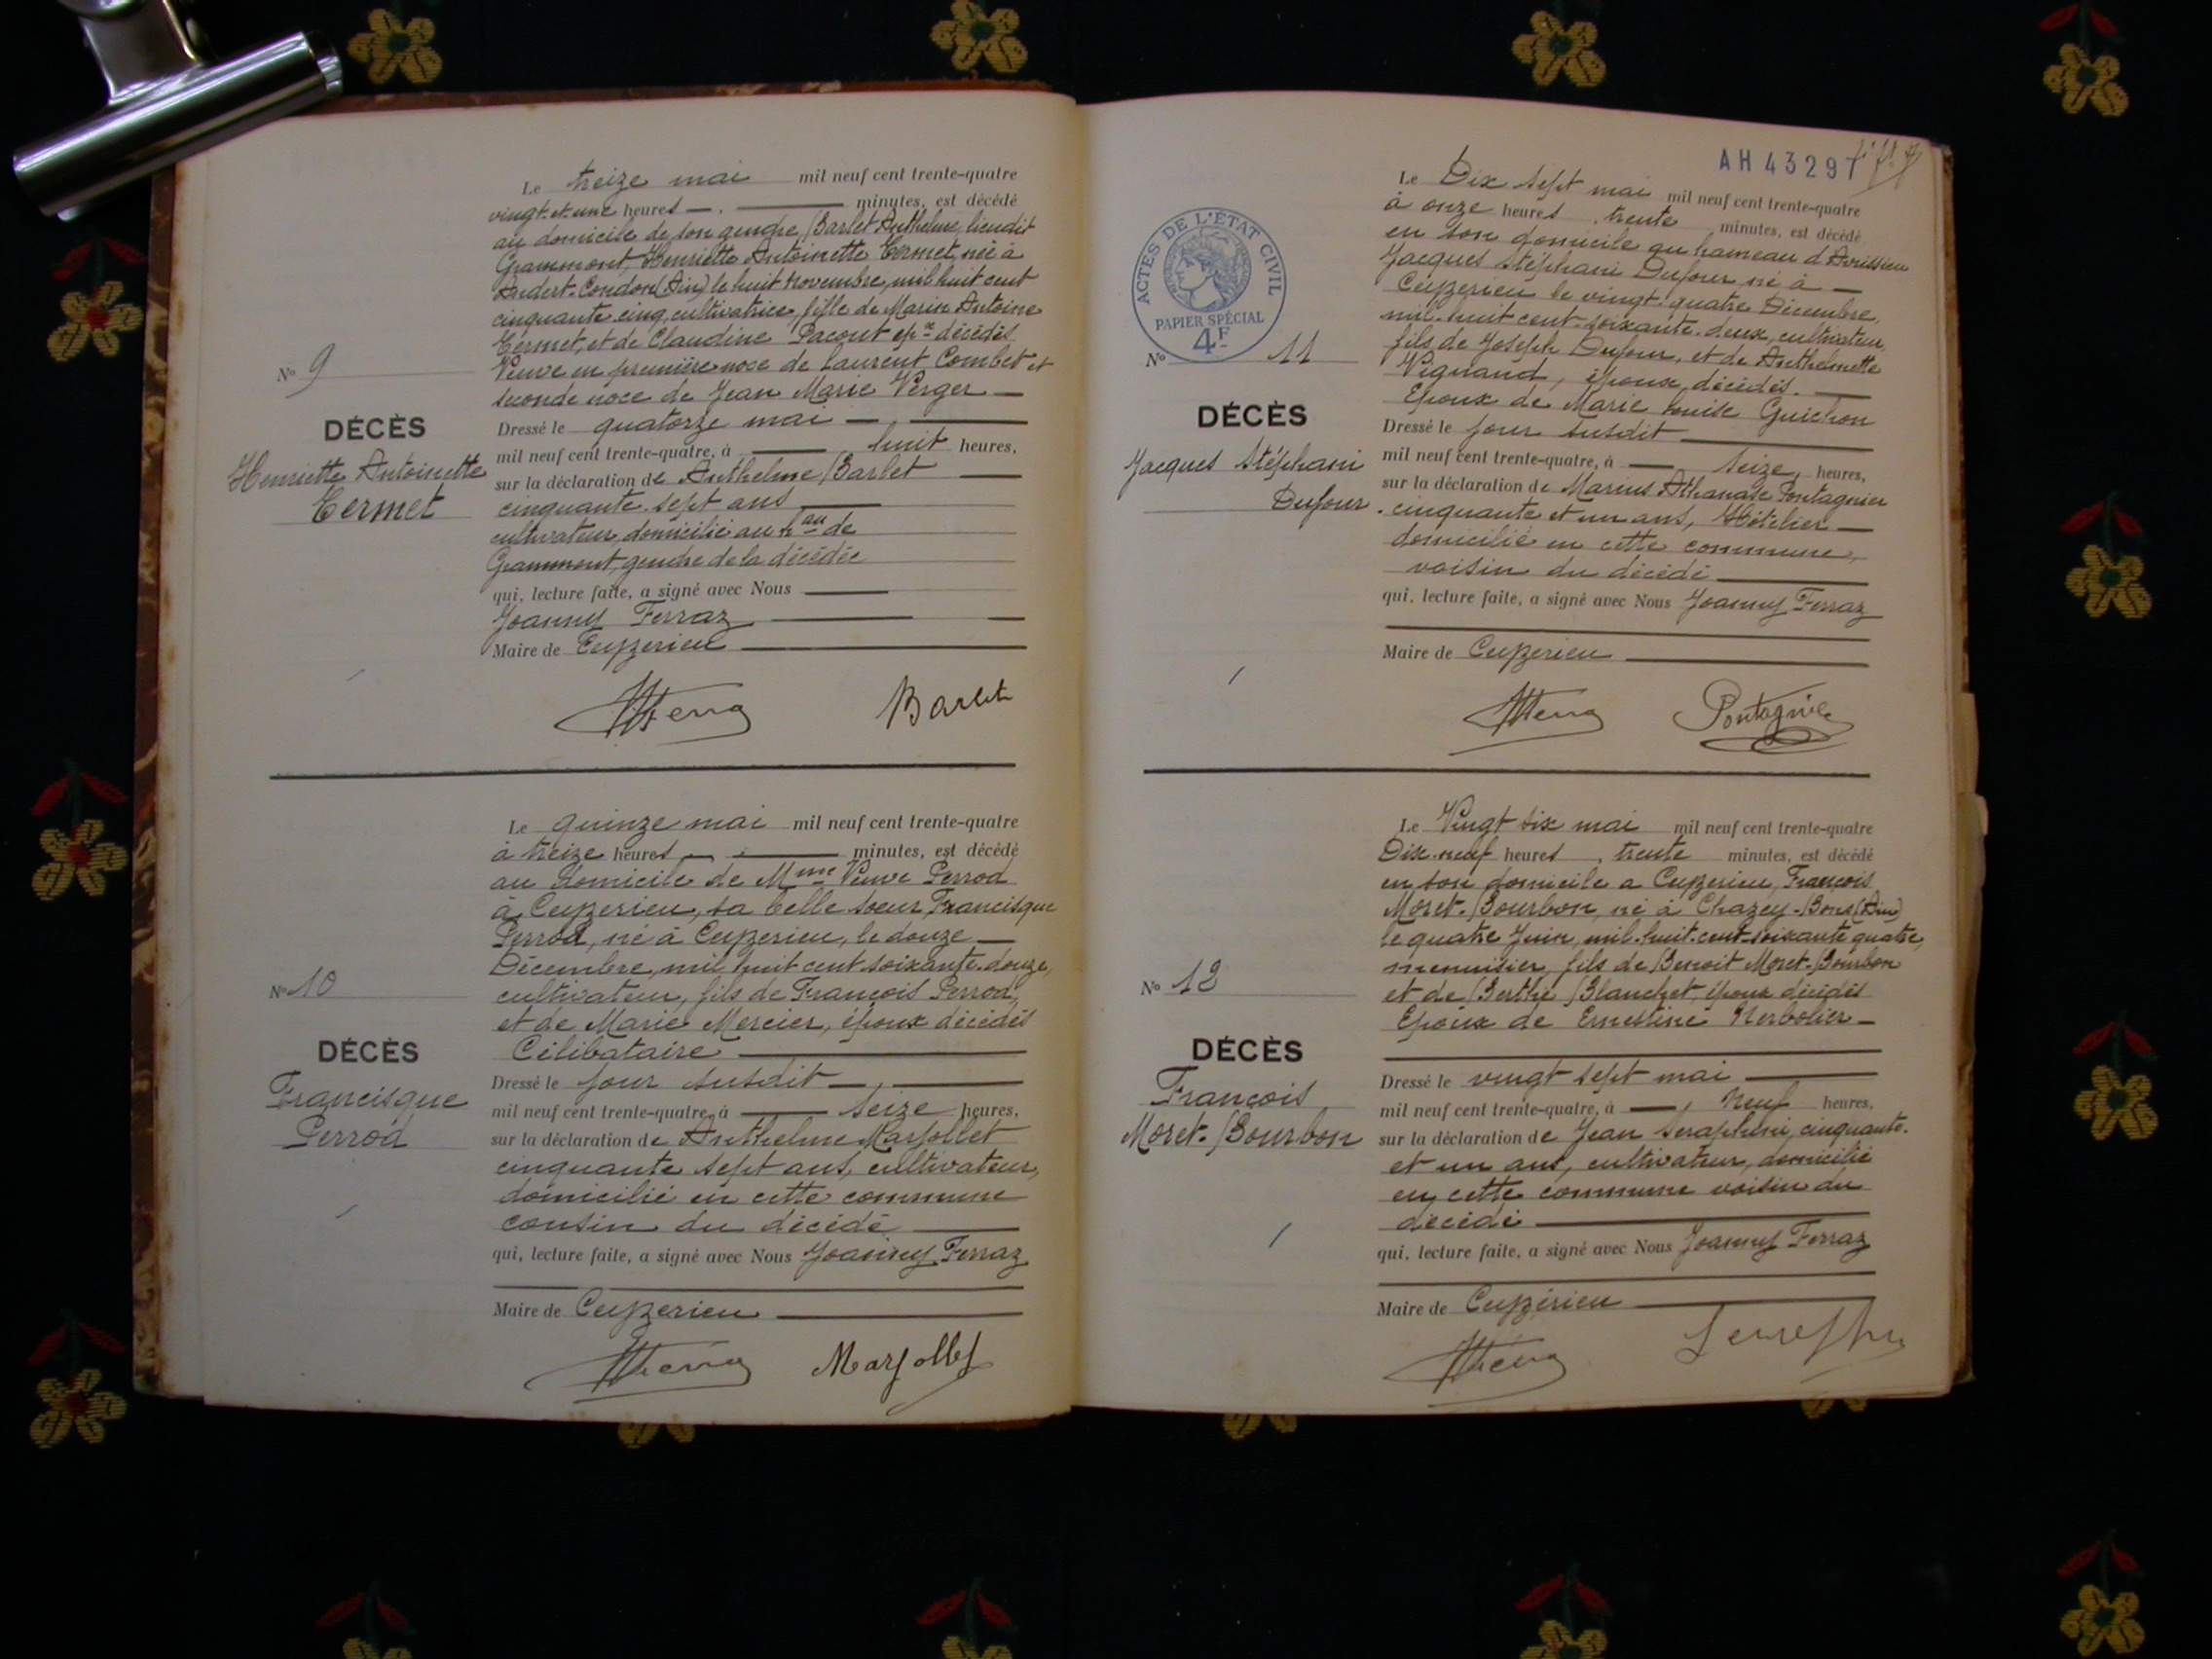 Le treize mai mil neuf cent trente-quatre
vingt-et-une heures — . — minutes, est décédé
au domicile de son gendre, Barlet Anthelme, lieudit
Grammont, Henriette Antoinette Termet, née à
Andert-Condon (Ain) le huit novembre, mil huit cent
cinquante cinq, cultivatrice, fille de Marin Antoine
Termet, et de Claudine Pacout épx décédés
Veuve en première noce de Laurent Combet et
seconde noce de Jean Marie Verger —
Nº 9
DÉCÈS
Henriette Antoinette
Termet
Dressé le quatorze mai —
mil neuf cent trente-quatre, à — huit heures,
sur la déclaration de Anthelme Barlet
cinquante sept ans
cultivateur, domicilié au hau de
Grammont, gendre de la décédée
qui, lecture faite, a signé avec Nous —
Joanny Ferraz
Maire de Ceyzerieu
Barlet
Le quinze mai mil neuf cent trente-quatre
à treize heures — . — minutes, est décédé
au domicile de Mme Veuve Perrod
à Ceyzerieu, sa belle soeur, Francisque
Perrod, né à Ceyzerieu, le douze —
Décembre, mil huit cent soixante-douze,
cultivateur, fils de François Perrod,
et de Marie Mercier, époux décédés
Célibataire
Nº 10
DÉCÈS
Francisque
Perrod
Dressé le jour susdit —
mil neuf cent trente-quatre, à — seize heures,
sur la déclaration de Anthelme Marjollet
cinquante sept ans, cultivateur,
domicilié en cette commune
cousin du décédé
qui, lecture faite, a signé avec Nous Joanny Ferraz
Maire de Ceyzerieu
Marjollet
AH 43297
ACTES DE L'ÉTAT CIVIL
PAPIER SPÉCIAL
4F
Le Dix sept mai mil neuf cent trente-quatre
à onze heures, trente minutes, est décédé
en son domicile au hameau d'Avrissieu
Jacques Stéphani Dufour né à —
Ceyzerieu le vingt-quatre Décembre,
mil-huit cent-soixante-deux, cultivateur,
fils de Joseph Dufour, et de Anthelmette
Vignand, époux, décédés. —
Epoux de Marie Louise Guichon
Nº 11
DÉCÈS
Jacques Stéphani
Dufour
Dressé le jour susdit
mil neuf cent trente-quatre, à — seize, heures,
sur la déclaration de Marius Athanase Pontagnier
cinquante et un ans, Hôtelier —
domicilié en cette commune,
voisin du décédé
qui, lecture faite, a signé avec Nous Joanny Ferraz
Maire de Ceyzerieu
Pontagnier
Le Vingt six mai mil neuf cent trente-quatre
Dix-neuf heures, trente minutes, est décédé
en son domicile a Ceyzerieu, François
Moret-Bourbon, né à Chazey-Bons (Ain)
le quatre Juin, mil-huit-cent-soixante quatre,
menuisier, fils de Benoit Moret-Bourbon
et de Berthe Blanchet, époux décédés
Epoux de Ernestine Nerbolier —
Nº 12
DÉCÈS
François
Moret-Bourbon
Dressé le vingt sept mai
mil neuf cent trente-quatre, à —, neuf heures,
sur la déclaration de Jean Seraphin, cinquante-
et un ans, cultivateur, domicilié
en cette commune voisin du
décédé
qui, lecture faite, a signé avec Nous Joanny Ferraz
Maire de Ceyzérieu